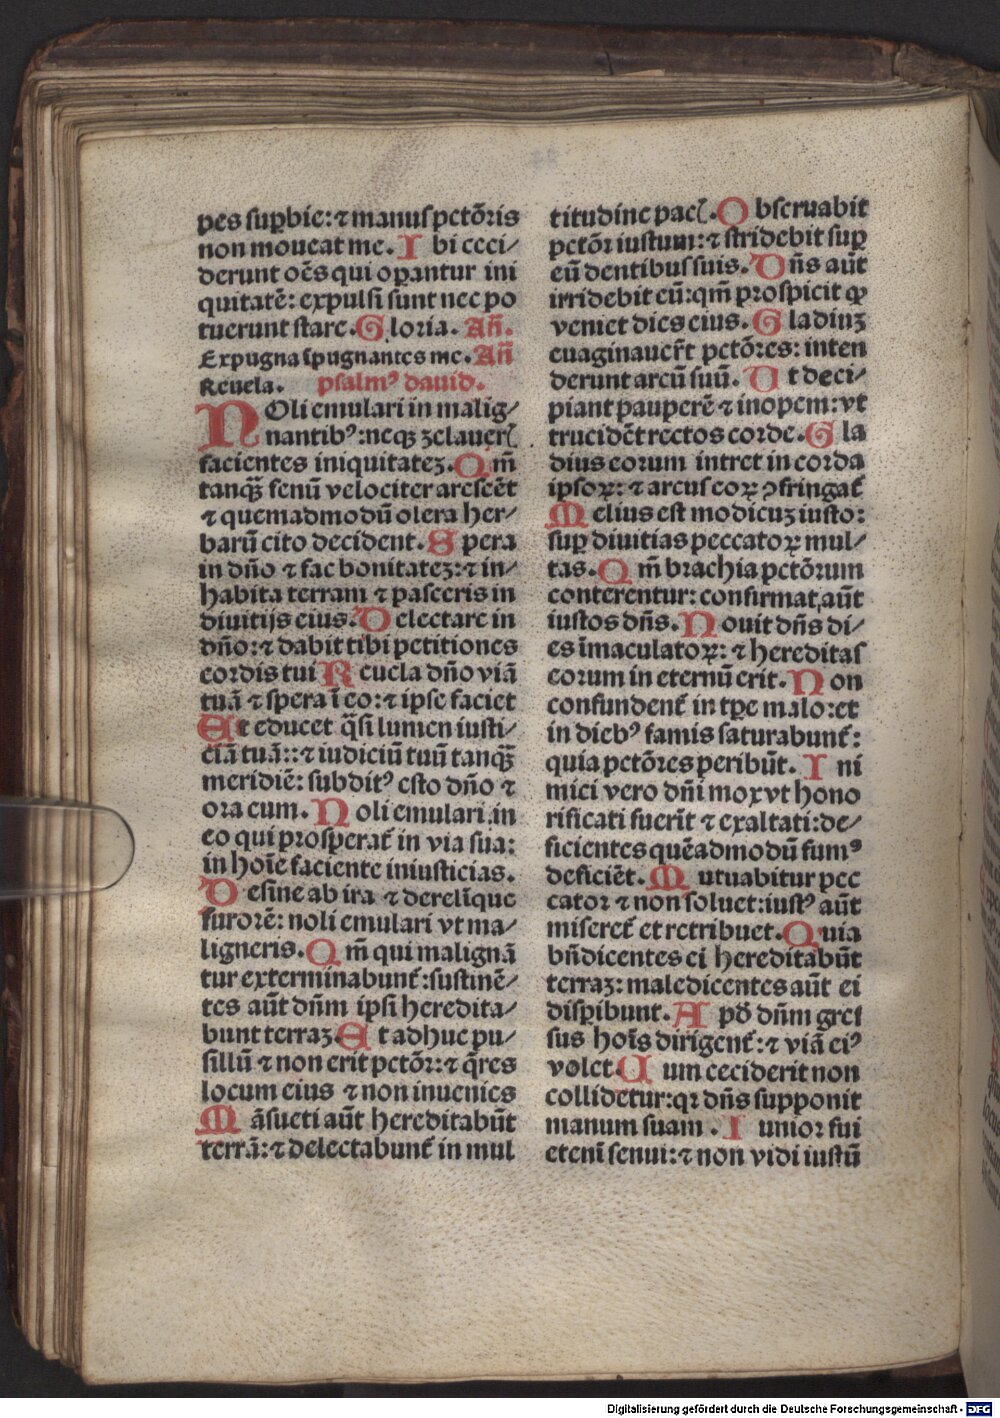 pes suꝑbie: ⁊ manus pctõris
non moueat me. Ibi ceci/
derunt oẽs qui oꝑantur ini
quitatẽ: expulsi sunt nec po
tuerunt stare. Gloria. Añ.
Expugna ipugnantes me. Añ
Reuela. psalmꝰ dauid.
NOli emulari in malig/
nantibꝰ: neqꝫ zelauerꝭ
facientes iniquitateꝫ. Qm̃
tanqꝫ̃ fenũ velociter arescẽt
⁊ quemadmodũ olera her/
barũ cito decident. Spera
in dño ⁊ fac bonitateꝫ: ⁊ in/
habita terram ⁊ pasceris in
diuitijs eius. Delectare in
dño: ⁊ dabit tibi petitiones
cordis tui Reuela dño viã
tuã ⁊ spera ĩ eo: ⁊ ipse faciet
Et educet q̃si lumen iusti/
ciã tuã:: ⁊ iudiciũ tuũ tanqꝫ̃
meridiẽ: subditꝰ esto dño ⁊
ora eum. Noli emulari in
eo qui prosperat̃ in via sua:
in hoĩe faciente iniusticias.
Desine ab ira ⁊ derelĩque
furorẽ: noli emulari vt ma/
ligneris. Qm̃ qui malignã
tur exterminabunt̃: sustinẽ/
tes aũt dñm ipsi heredita/
bunt terraꝫ. Et adhuc pu/
sillũ ⁊ non erit pctõr: ⁊ q̃res
locum eius ⁊ non inuenies
Mãsueti aũt hereditabũt
terrã: ⁊ delectabunt̃ in mul
titudine pacꝭ. Obseruabit
pctõr iustum: ⁊ stridebit suꝑ
eũ dentibus suis. Dñs aũt
irridebit eũ: qm̃ prospicit ꝙ
veniet dies eius. Gladiuꝫ
euaginauer̃t pctõres: inten
derunt arcũ suũ. Vt deci/
piant pauperẽ ⁊ inopem: vt
trucidẽt rectos corde. Gla
dius eorum intret in corda
ipsoꝝ: ⁊ arcus eoꝝ ↄfringat̃
Melius est modicuꝫ iusto:
suꝑ diuitias peccatoꝝ mul/
tas. Qm̃ brachia pctõrum
conterentur: confirmat aũt
iustos dñs. Nouit dñs di/
es ĩmaculatoꝝ: ⁊ hereditas
eorum in eternũ erit. Non
confundent̃ in tꝑe malo: et
in diebꝰ famis saturabunt̃:
quia pctõres peribũt. Ini
mici vero dñi mox vt hono
rificati fuerĩt ⁊ exaltati: de/
ficientes quẽadmodũ fumꝰ
deficiẽt. Mutuabitur pec
cator ⁊ non soluet: iustꝰ aũt
miseret̃ et retribuet. Quia
bñdicentes ei hereditabũt
terraꝫ: maledicentes aũt ei
dispibunt. Apď dñm gres
sus hoĩs dirigent̃: ⁊ viã eiꝰ
volet. Cum ceciderit non
collidetur: qꝛ dñs supponit
manum suam. Iunior fui
etenĩ senui: ⁊ non vidi iustũ
Digitalisierung gefördert durch die Deutsche Forschungsgemeinschaft - DFG